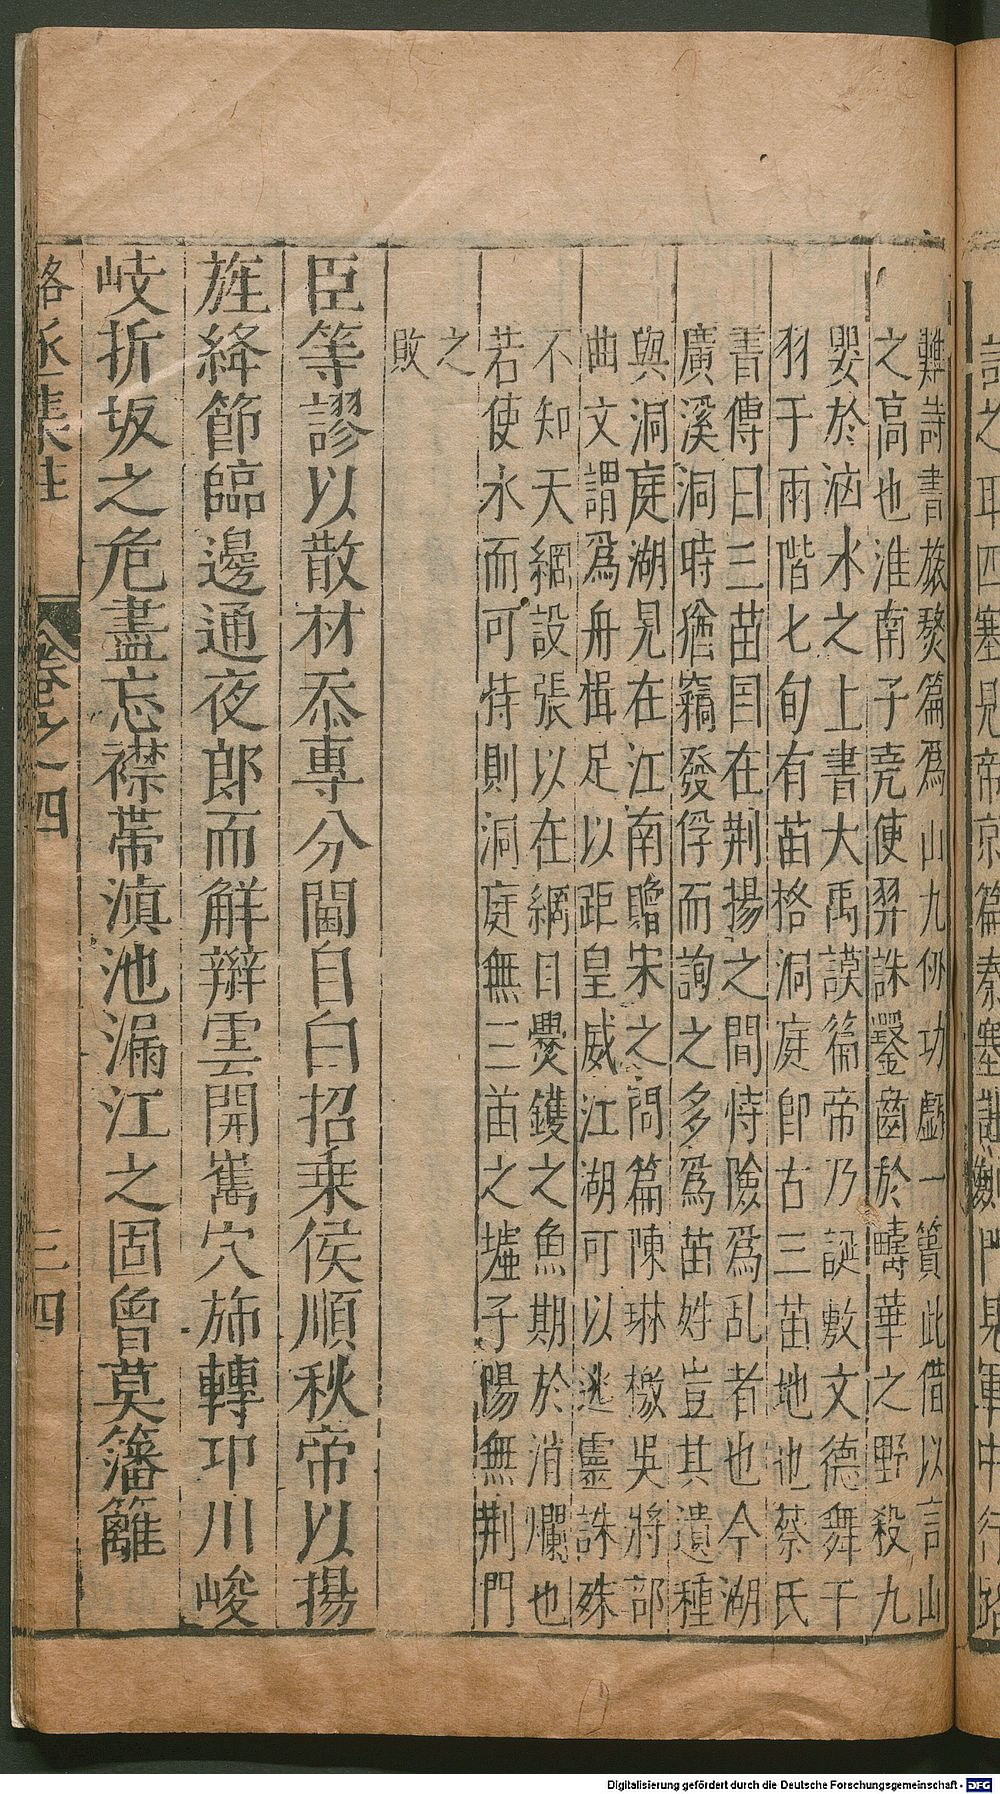 難詩書旅獒篇為山九仞功虧一簣此借以言山
之高也淮南子堯使羿誅鑿齒於疇華之野殺九
嬰於㓙水之上書大禹謨篇帝乃誕敷文德舞干
羽于兩階七旬有苗格洞庭即古三苗地也蔡氏
書傳曰三苗国在荆揚之間恃險為乱者也今湖
廣溪洞時猶竊發俘而詢之多為苗姓豈其遺種
與洞庭湖見在江南贈宋之問篇陳琳檄吳將部
曲文謂為舟楫足以距皇威江湖可以逃靈誅殊
不知天網設張以在綱目爨鑊之魚期於消爛也
若使水而可恃則洞庭無三苗之墟子陽無荆門
之
敗
臣等謬以散材忝專分閫自白招乗侯順秋帝以揚
旌絳節臨邊通夜郎而解辮雲開嶲穴斾轉卭川峻
岐折坂之危盡忘襟帯滇池漏江之固曾莫籓籬
卷之四
三四
Digitalisierung gefördert durch die Deutsche Forschungsgemeinschaft - DFG